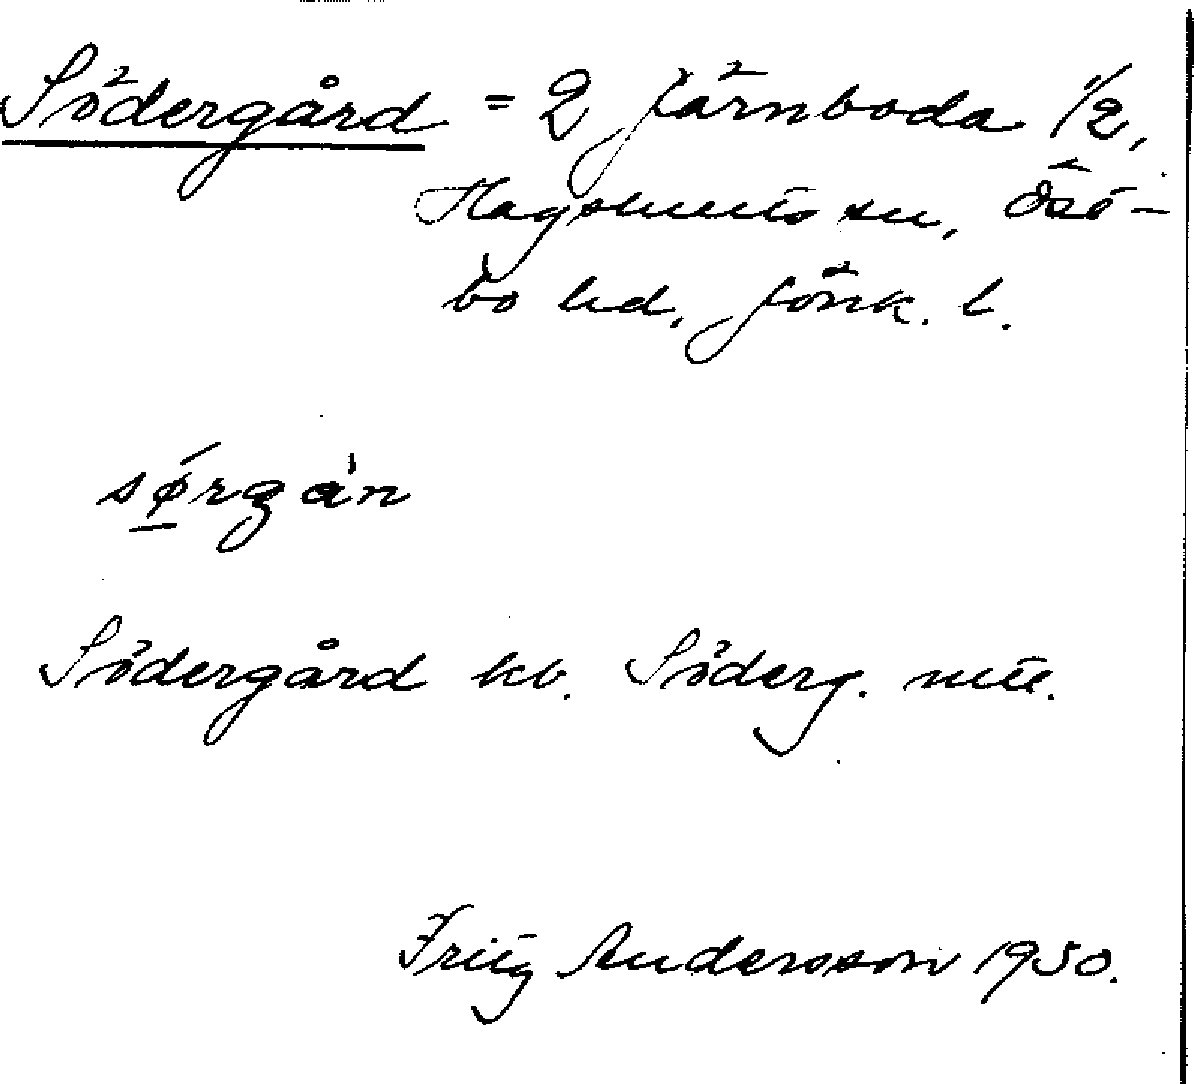 Södergård = 2 Järnboda 1/2,
Hagshults sn, Öst-
bo hd, Jönk. l.
sǿ̱rgàn
Södergård kb. Söderg. mtl.
Fritz Andersson 1950.